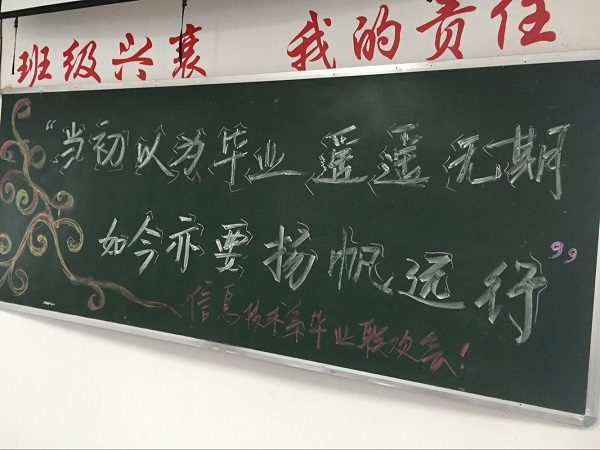 班级兴衰 我的责任
“当初以为毕业遥遥无期
如今亦要扬帆远行”
信息技术系毕业联欢会！